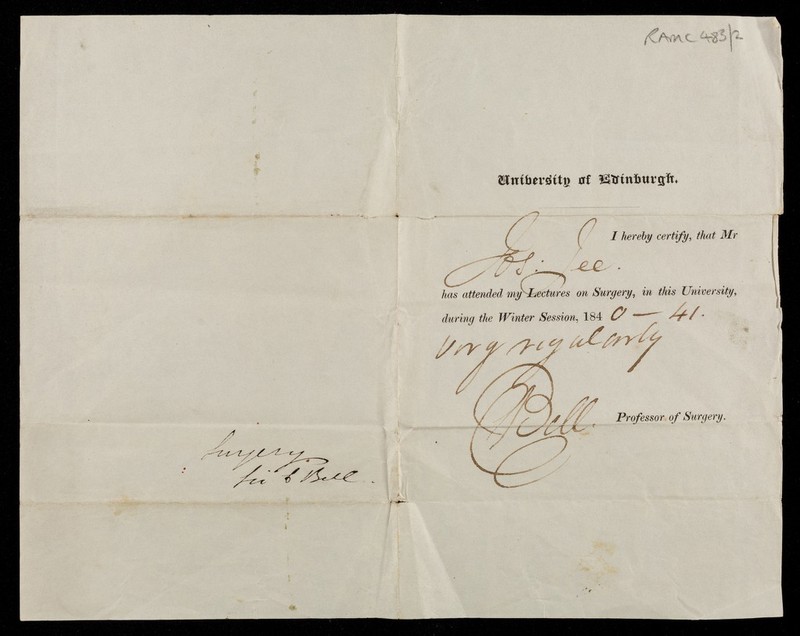 RAMC 483/2
University of Edinburgh.
I hereby certify, that Mr
Jos: Jee.
has attended my Lectures on Surgery, in this University,
during the Winter Session, 1840 – 41.
very regularly
C Bell. Professor of Surgery.
Surgery
Sir C Bell.